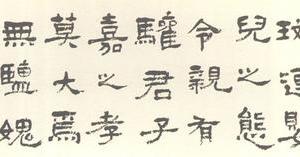 連嬰
兒之態
令親有
驩君子
嘉之孝
莫大焉
無鹽媿